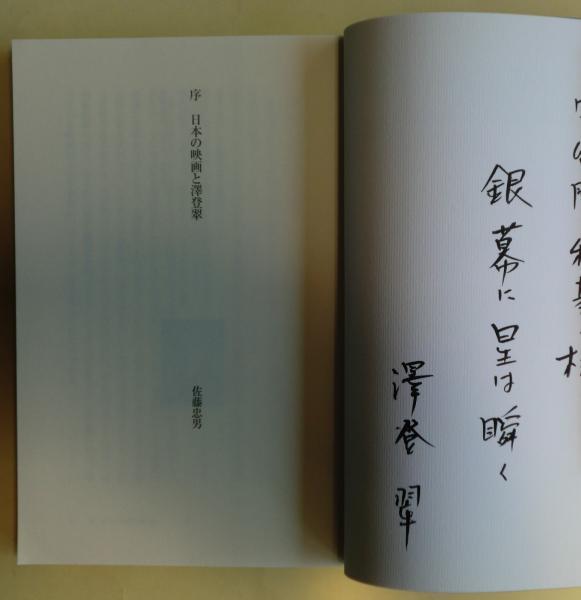 銀幕に星は瞬く
澤登翠
序　日本の映画と澤登翠
佐藤忠男